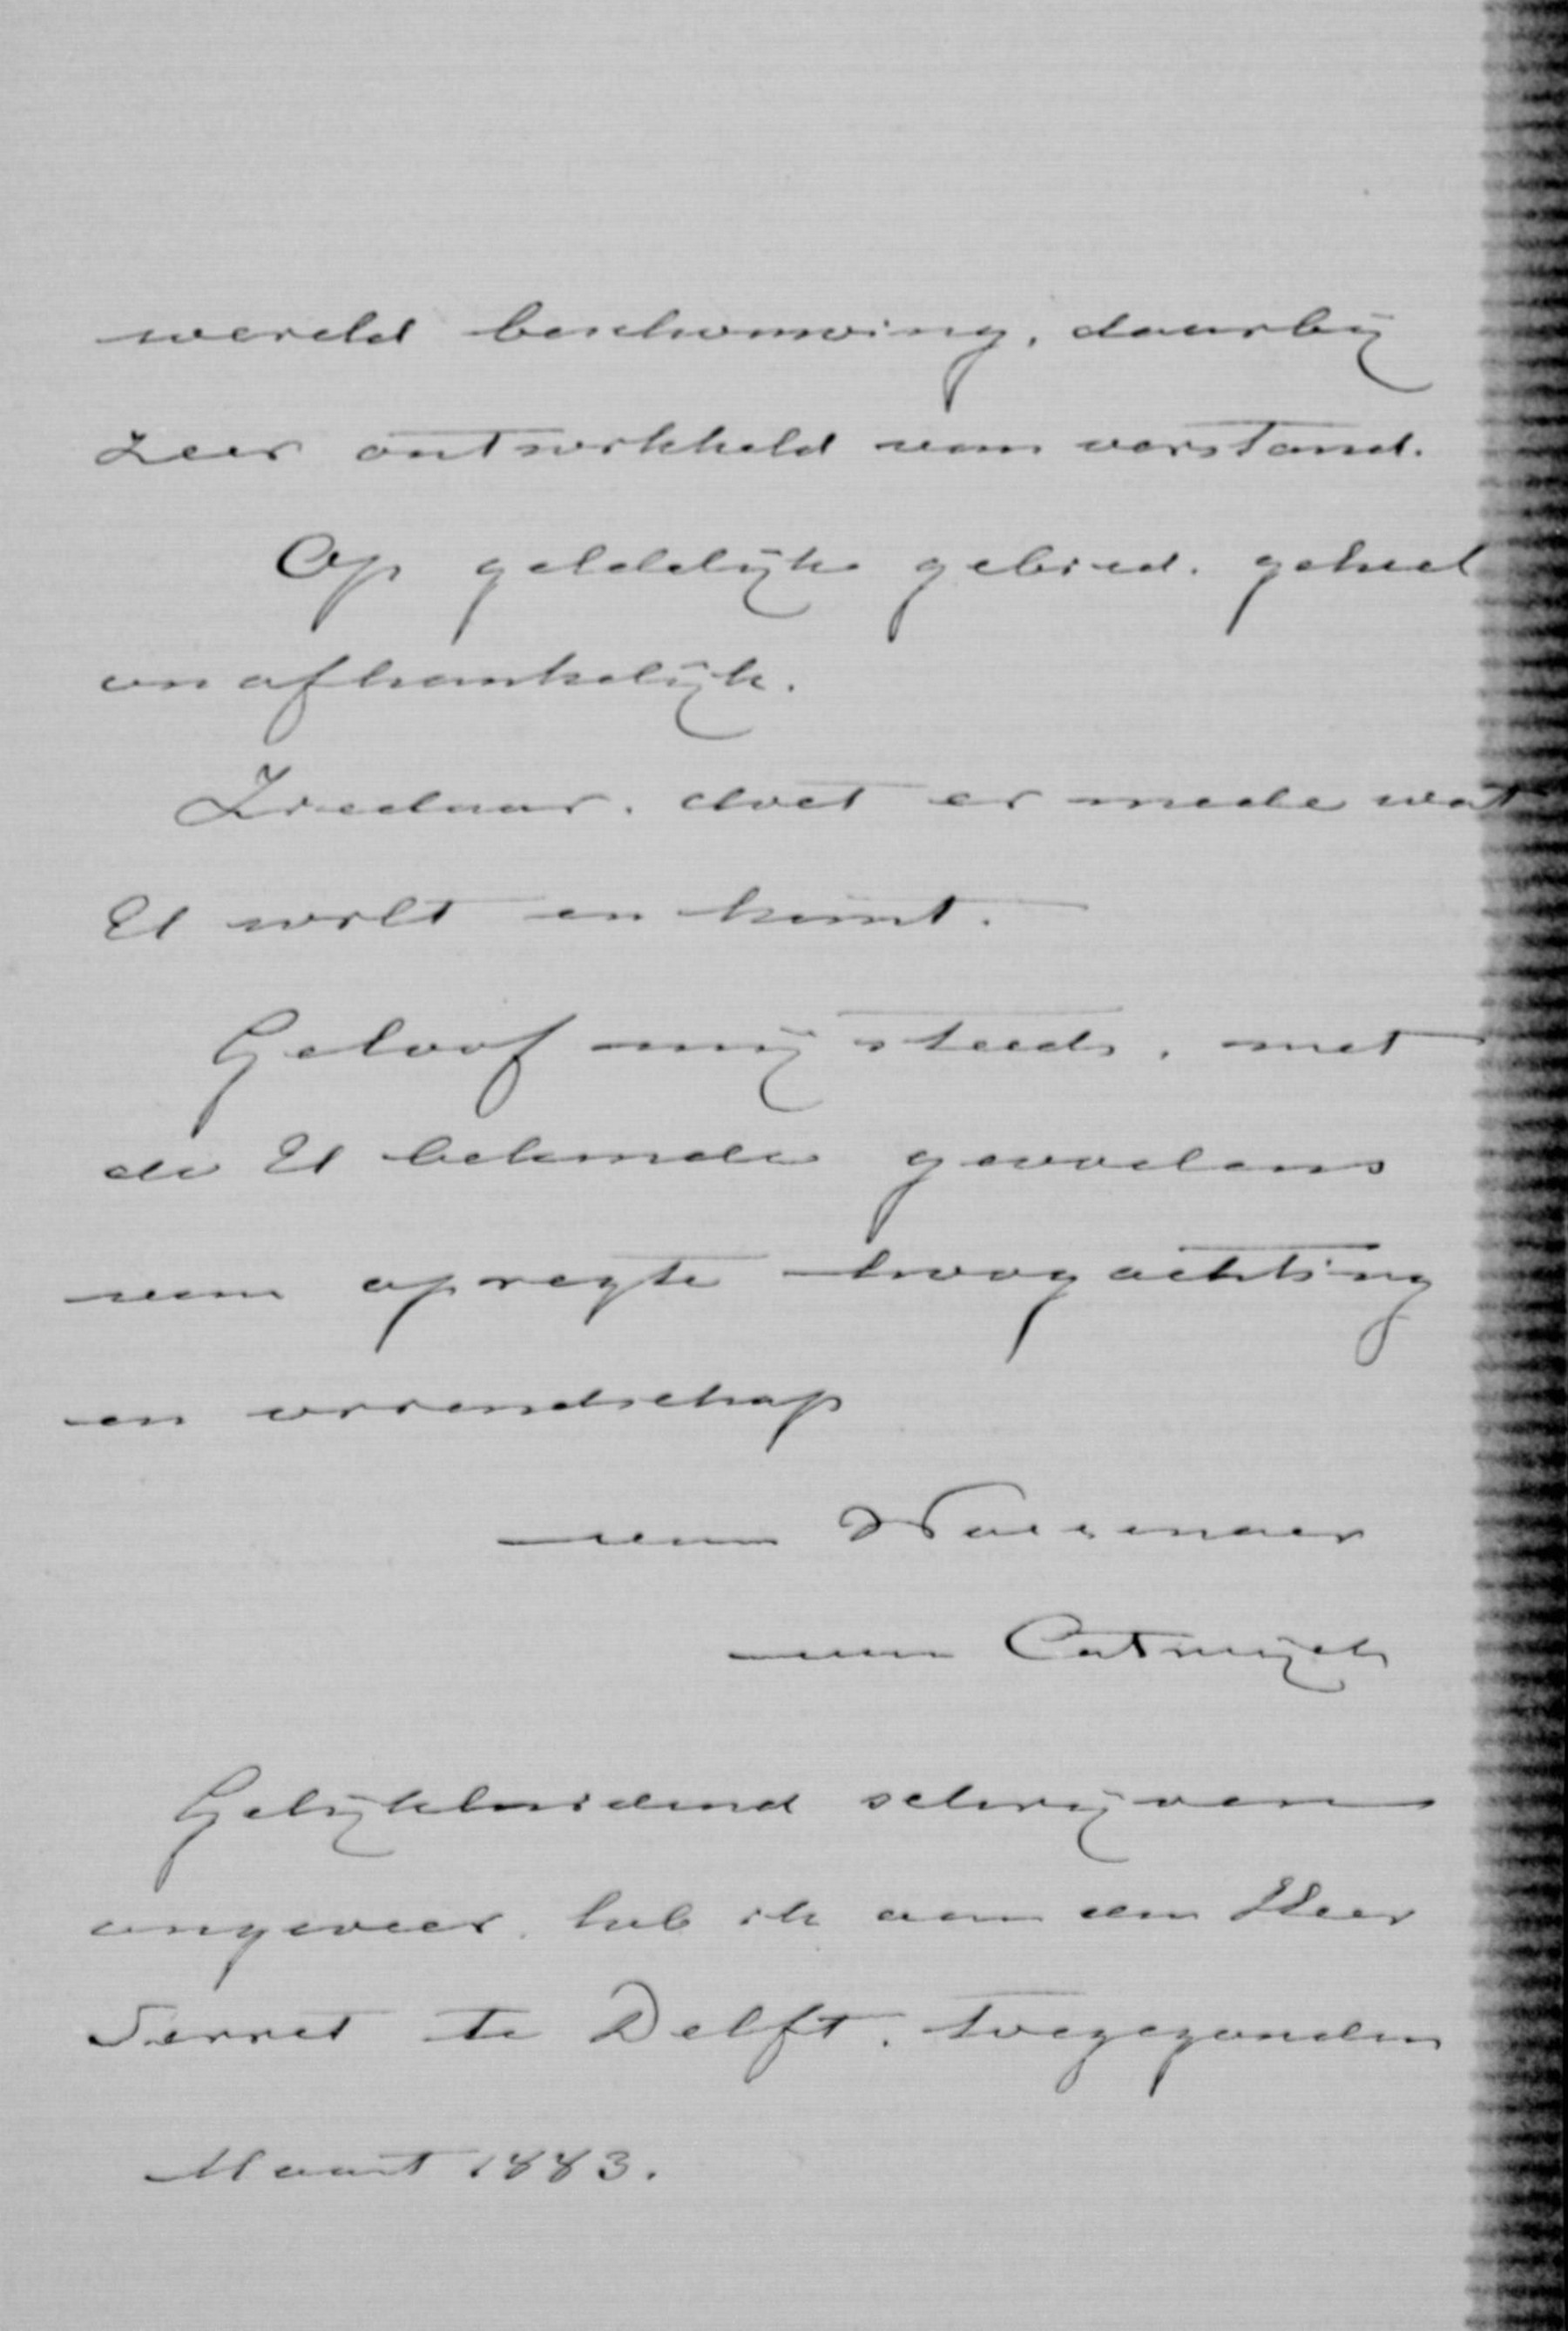 wereld beschouwing, daarbij
zeer ontwikkeld van verstand.
Op geldelijk gebied. geheel
onafhankelijk.
Ziedaar. doet er mede wat
U wilt en kunt.
Geloof mij steeds, met
de U bekende gevoelens
van opregte hoogachting
en vriendschap
van Wassenaer
van Catwijck
Gelijkluidend schrijven
ongeveer. heb ik aan den Heer
Serret te Delft. toegezonden
Maart 1883.